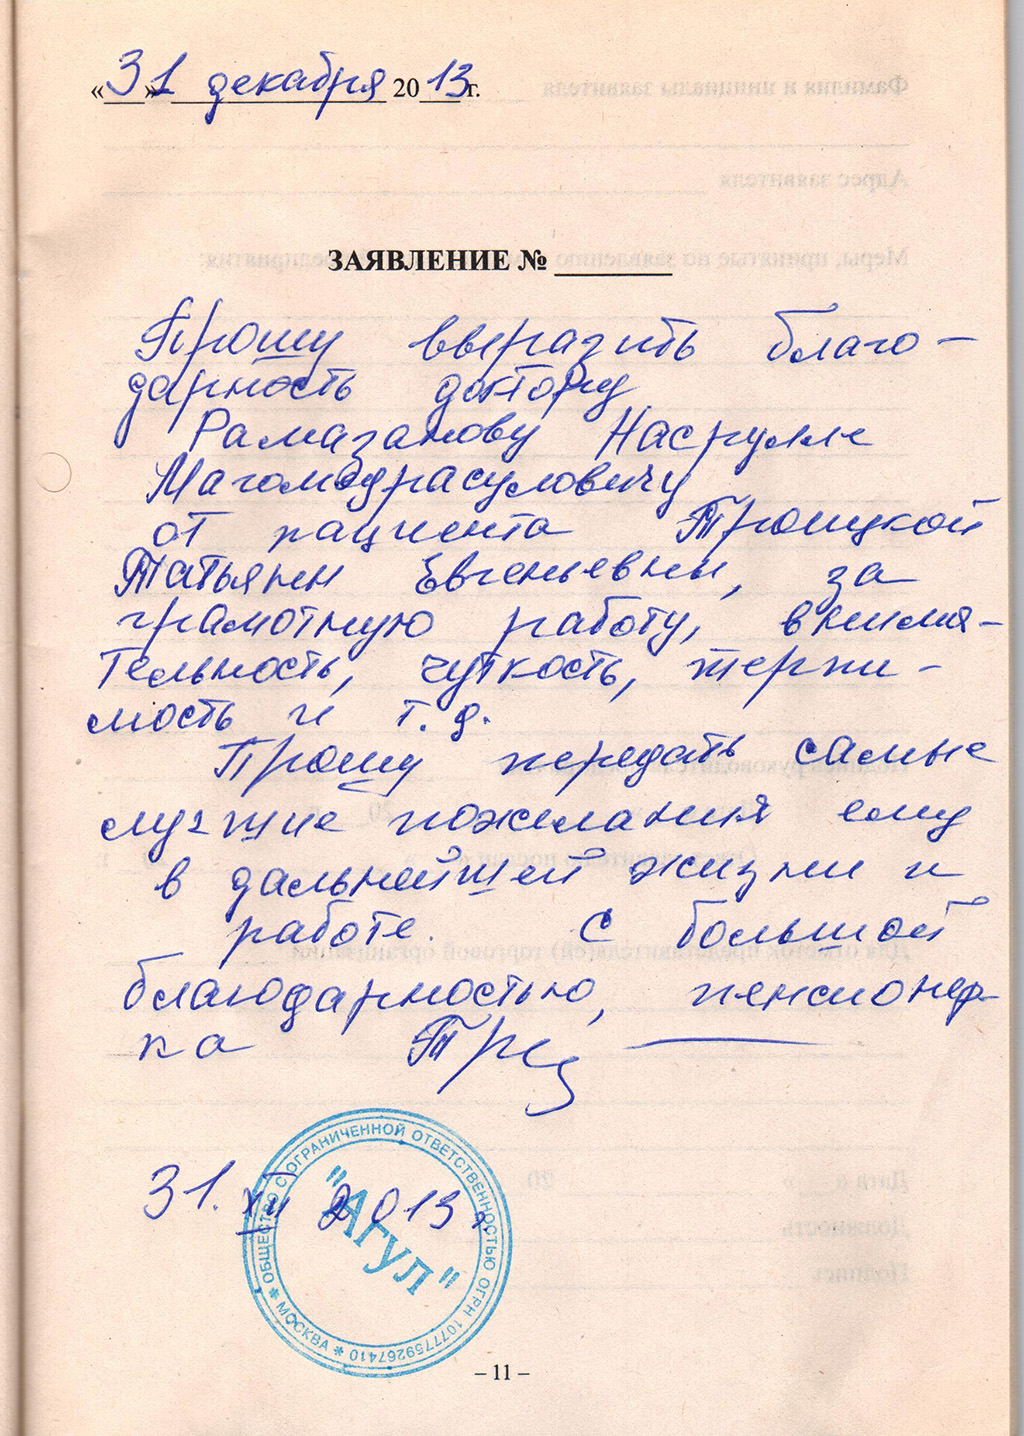 «31» декабря 2013г.
ЗАЯВЛЕНИЕ №
Прошу выразить благо-
дарность доктору
Рамазанову Насрулле
Магомедрасуловичу
от пациента Троицкой
Татьяны Евгеньевны, за
грамотную работу, внима-
тельность, чуткость, терпи-
мость и т.д.
Прошу передать самые
лучшие пожелания ему
в дальнейшей жизни и
работе. С большой
благодарностью, пенсионер-
ка
31.XII 2013г.
ОБЩЕСТВО С ОГРАНИЧЕННОЙ ОТВЕТСТВЕННОСТЬЮ ОГРН 1077759267410
* МОСКВА *
"Агул"
– 11 –